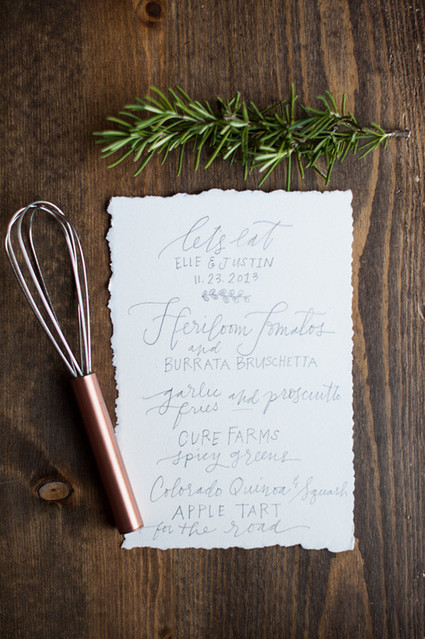 lets eat
ELLE & JUSTIN
11.23.2013
Heirloom Tomatos
and
BURRATA BRUSCHETTA
garlic and prosciutto
fries
CURE FARMS
spicy greens
Colorado Quinoa & Squash
APPLE TART
for the road